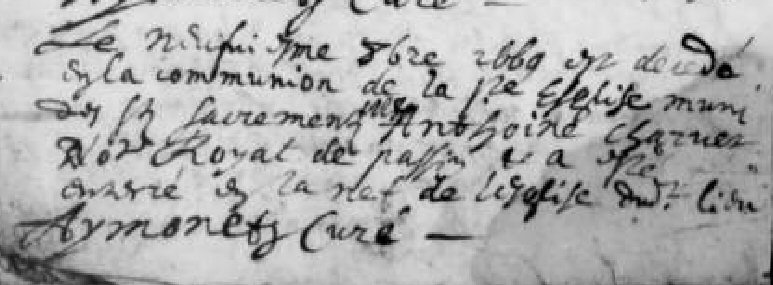 Curé —
Le neufviesme 8bre 1669 est decedé
en la communion de la ste Esglise muni
des sts sacrements mre Anthoine Charvet
Not.re Royal de passin & a esté
enterré en la nef de lesglise dud.t lieu
Aymonetz Curé —